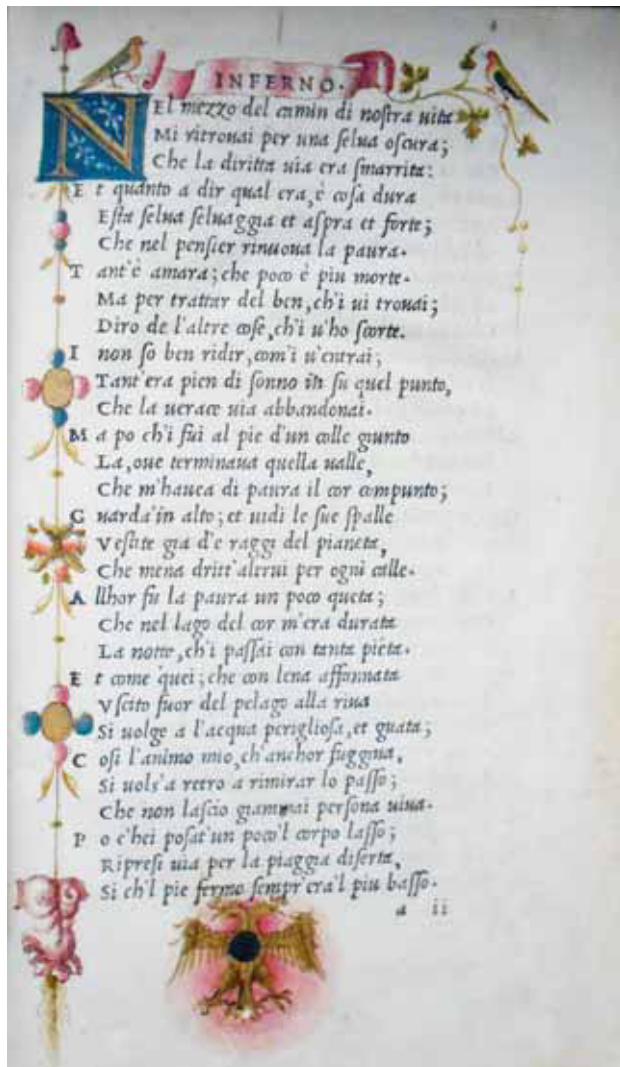 INFERNO.
NEl mezzo del camin di nostra uita
Mi ritrouai per una ſelua oſcura;
Che la diritta uia era ſmarrita:
E t quanto a dir qual era, è coſa dura
Eſta ſelua ſeluaggia et aſpra et forte;
Che nel penſier rinuoua la paura.
T ant'è amara; che poco è piu morte.
Ma per trattar del ben, ch'i ui trouai;
Diro de l'altre coſe, ch'i u'ho ſcorte.
I non ſo ben ridir, com'i u'entrai;
Tant'era pien di ſonno in ſu quel punto,
Che la uerace uia abbandonai.
M a po ch'i fui al pie d'un colle giunto
La, oue terminaua quella ualle,
Che m'hauea di paura il cor compunto;
G uarda'in alto; et uidi le ſue ſpalle
Veſtite gia d'e raggi del pianeta,
Che mena dritt'altrui per ogni calle.
A llhor fu la paura un poco queta;
Che nel lago del cor m'era durata
La notte, ch'i paſſai con tanta pieta.
E t come quei; che con lena affannata
Vſcito fuor del pelago alla riua
Si uolge a l'acqua periglioſa, et guata;
C oſi l'animo mio, ch'anchor fuggiua,
Si uolſ'a retro a rimirar lo paſſo;
Che non laſcio giammai perſona uiua.
P o c'hei poſat'un poco'l corpo laſſo;
Ripreſi uia per la piaggia diſerta,
Si ch'l pie fermo ſempr'era'l piu baſſo.
a ii